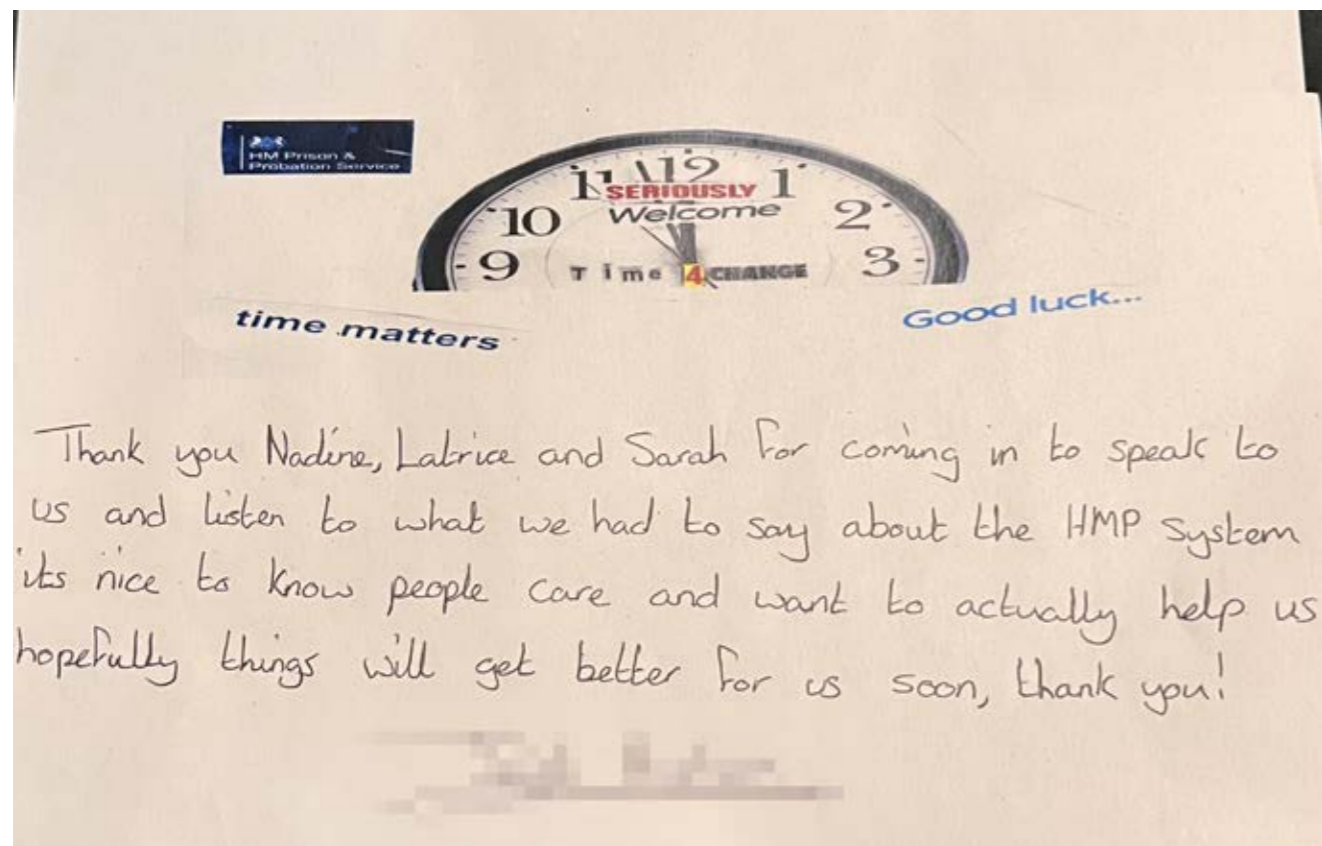 HM Prison &
Probation Service
11 12 1
SERIOUSLY
10 Welcome 2
9 Time 4 CHANGE 3
time matters
Good luck...
Thank you Nadine, Latrice and Sarah for coming in to speak to
us and listen to what we had to say about the HMP system
its nice to know people care and want to actually help us
hopefully things will get better for us soon, thank you!